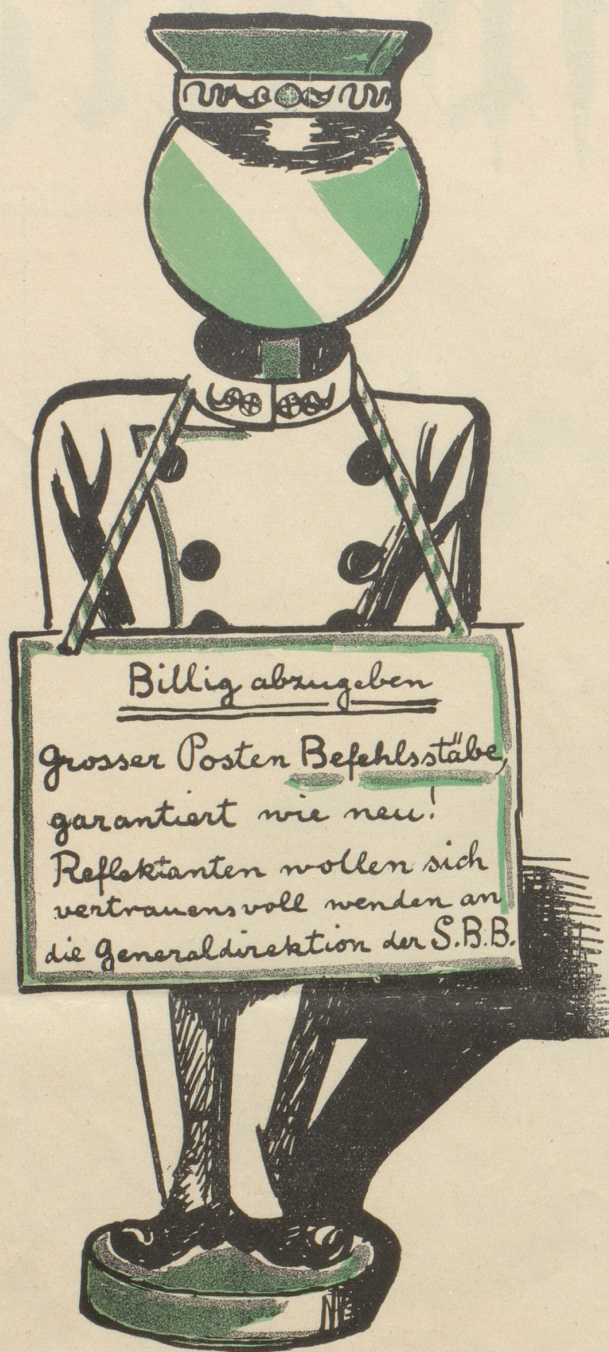 Billig abzugeben
Grosser Posten Befehlsstäbe,
garantiert wie neu!
Reflektanten wollen sich
vertrauensvoll wenden an
die Generaldirektion der S.B.B.